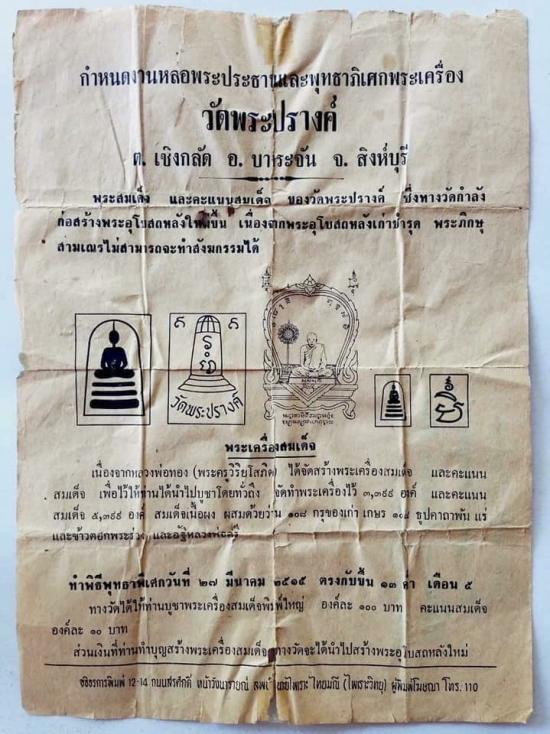 กำหนดงานหล่อพระประธานและพุทธาภิเศกพระเครื่อง
วัดพระปรางค์
ต. เชิงกลัด อ. บางระจัน จ. สิงห์บุรี
พระสมเด็จ และคะแนนสมเด็จ ของวัดพระปรางค์ ซึ่งทางวัดกำลัง
ก่อสร้างพระอุโบสถหลังใหม่ขึ้น เนื่องจากพระอุโบสถหลังเก่าชำรุด พระภิกษุ
สามเณรไม่สามารถจะทำสังฆกรรมได้
วัดพระปรางค์
พระเครื่องสมเด็จ
เนื่องจากหลวงพ่อทอง (พระครูวิริยโสภิต) ได้จัดสร้างพระเครื่องสมเด็จ และคะแนน
สมเด็จ เพื่อไว้ให้ท่านได้นำไปบูชาโดยทั่วถึง จัดทำพระเครื่องไว้ ๓,๓๙๙ องค์ และคะแนน
สมเด็จ ๕,๓๙๙ องค์ สมเด็จเนื้อผง ผสมด้วยว่าน ๑๐๘ กรุของเก่า เกษร ๑๐๘ ธูปคาถาพัน แร่
และข้าวตอกพระร่วง และอัฐิหลวงพ่อศรี
ทำพิธีพุทธาพิเศกวันที่ ๒๗ มีนาคม ๒๕๑๕ ตรงกับขึ้น ๑๓ ค่ำ เดือน ๕
ทางวัดได้ให้ท่านบูชาพระเครื่องสมเด็จพิมพ์ใหญ่ องค์ละ ๑๐๐ บาท คะแนนสมเด็จ
องค์ละ ๑๐ บาท
ส่วนเงินที่ท่านทำบุญสร้างพระเครื่องสมเด็จ ทางวัดจะได้นำไปสร้างพระอุโบสถหลังใหม่
12-14 ถนนสรศักดิ์ หน้าวังนารายณ์ ไทยมณี (ไพเราะวิทยุ) ผู้พิมพ์โฆษณา โทร. 110